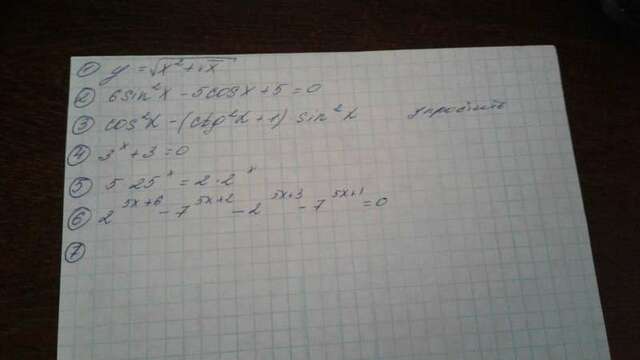 ① y = √x² + √x
② 6sin²x - 5cosx + 5 = 0
③ cos²α - (ctg²α + 1) sin²α упростить
④ 3ˣ + 3 = 0
⑤ 5 25ˣ = 2 · 2ˣ
⑥ 2⁵ˣ⁺⁶ - 7⁵ˣ⁺² - 2⁵ˣ⁺³ - 7⁵ˣ⁺¹ = 0
⑦